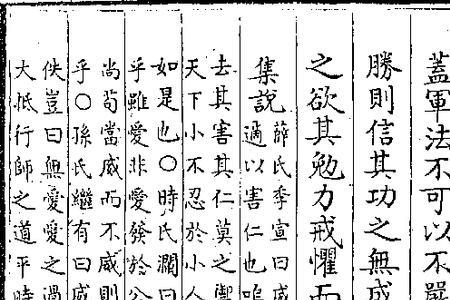 蓋軍法不可以不嚴
勝則信其功之無成
之欲其勉力戒懼而
集説薛氏季宣曰威
適以害仁也嗚
去其害其仁莫之禦
天下小不忍於小人
如是也○時氏瀾曰
乎雖愛非愛發於公
尚苟當威而不威則
乎○孫氏繼有曰威
佚豈曰無愛愛之過
大抵行師之道平時